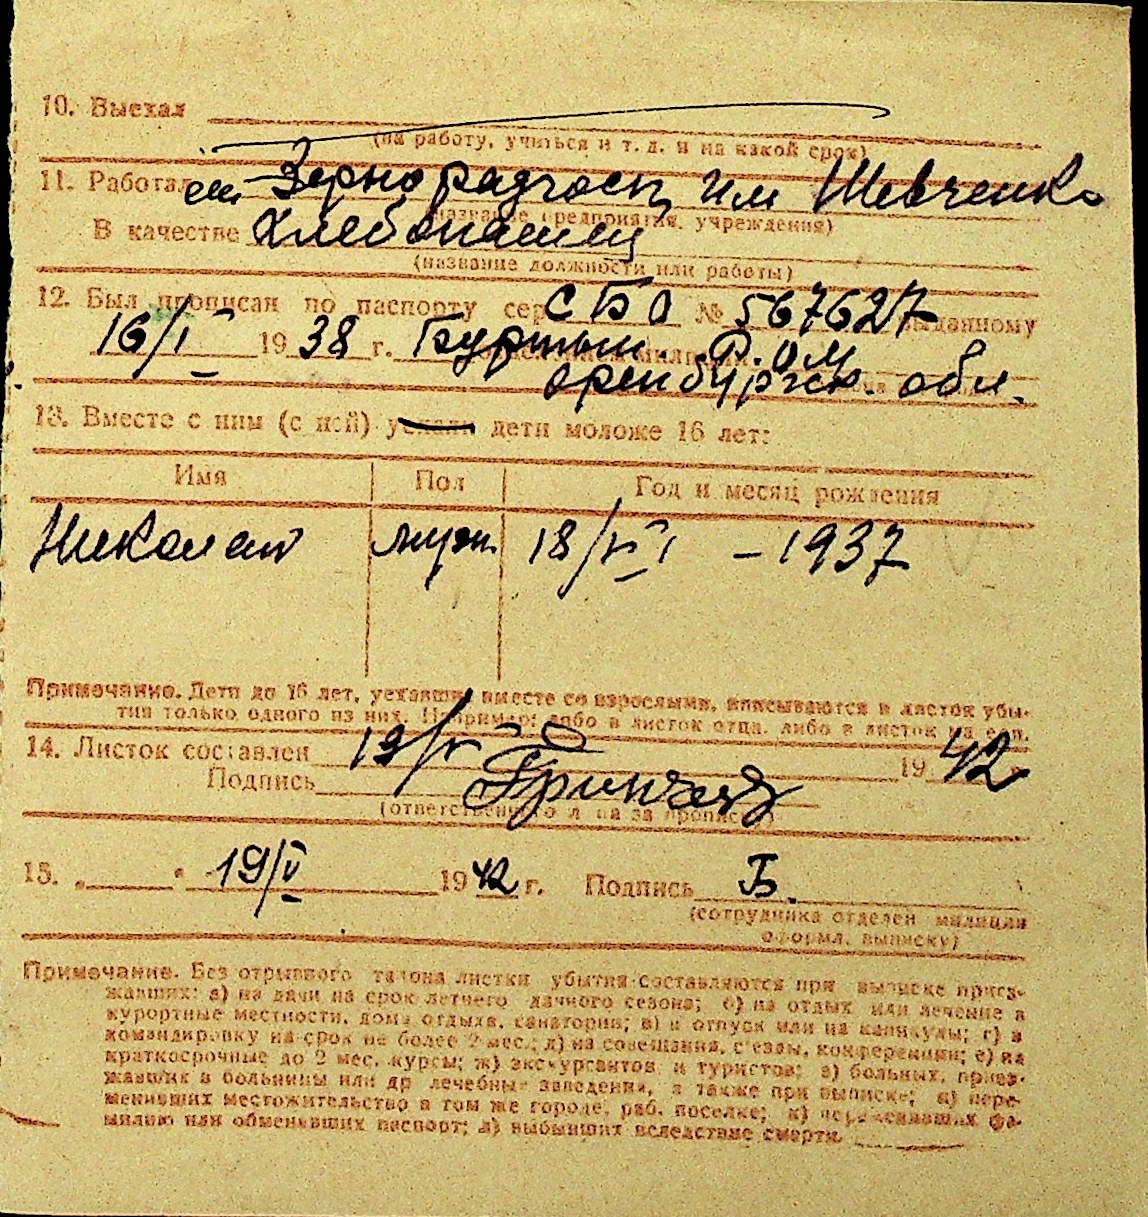 10. Выехал
(на работу, учиться и т. д. и на какой срок)
11. Работал Зерно им Шевченко
(название предприятия, учреждения)
В качестве Хлебопашец
(название должности или работы)
12. Был прописан по паспорту сер СБО № 567627 выданному
16/I 1938 г. Буртин. Р.О.М
оренбургск. обл.
13. Вместе с ним (с ней) уехали дети моложе 16 лет:
Имя Пол Год и месяц рождения
Николай муж. 18/VI - 1937
Примечание. Дети до 16 лет, уехавшие вместе со взрослыми, вписываются в листок убы-
тия только одного из них. Например: либо в листок отца, либо в листок матери.
14. Листок составлен 19/V 1942
Подпись
(ответственного лица за прописку)
15. „ " 19/V 1942 г. Подпись Б.
(сотрудника отделен милиции
оформл. выписку)
Примечание. Без отрывного талона листки убытия составляются при выписке приез-
жавших: а) на дачи на срок летнего дачного сезона; б) на отдых или лечение в
курортные местности, дома отдыха, санатории; в) в отпуск или на каникулы; г) в
командировку на срок не более 2 мес.; д) на совещания, съезды, конференции; е) на
краткосрочные до 2 мес. курсы; ж) экскурсантов и туристов; з) больных, приез-
жавших в больницы или др лечебные заведения, а также при выписке; и) пере-
менивших местожительство в том же городе, раб. поселке; к) переменивших фа-
милию или обменявших паспорт; л) выбывших вследствие смерти.